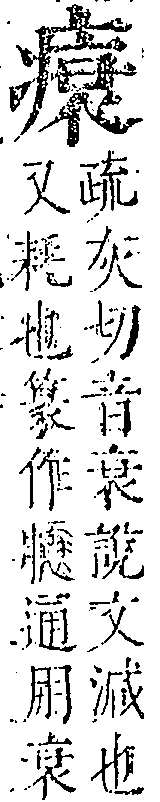 㾽
疏灰切音衰說文減也
又耗也篆作㿈通用衰